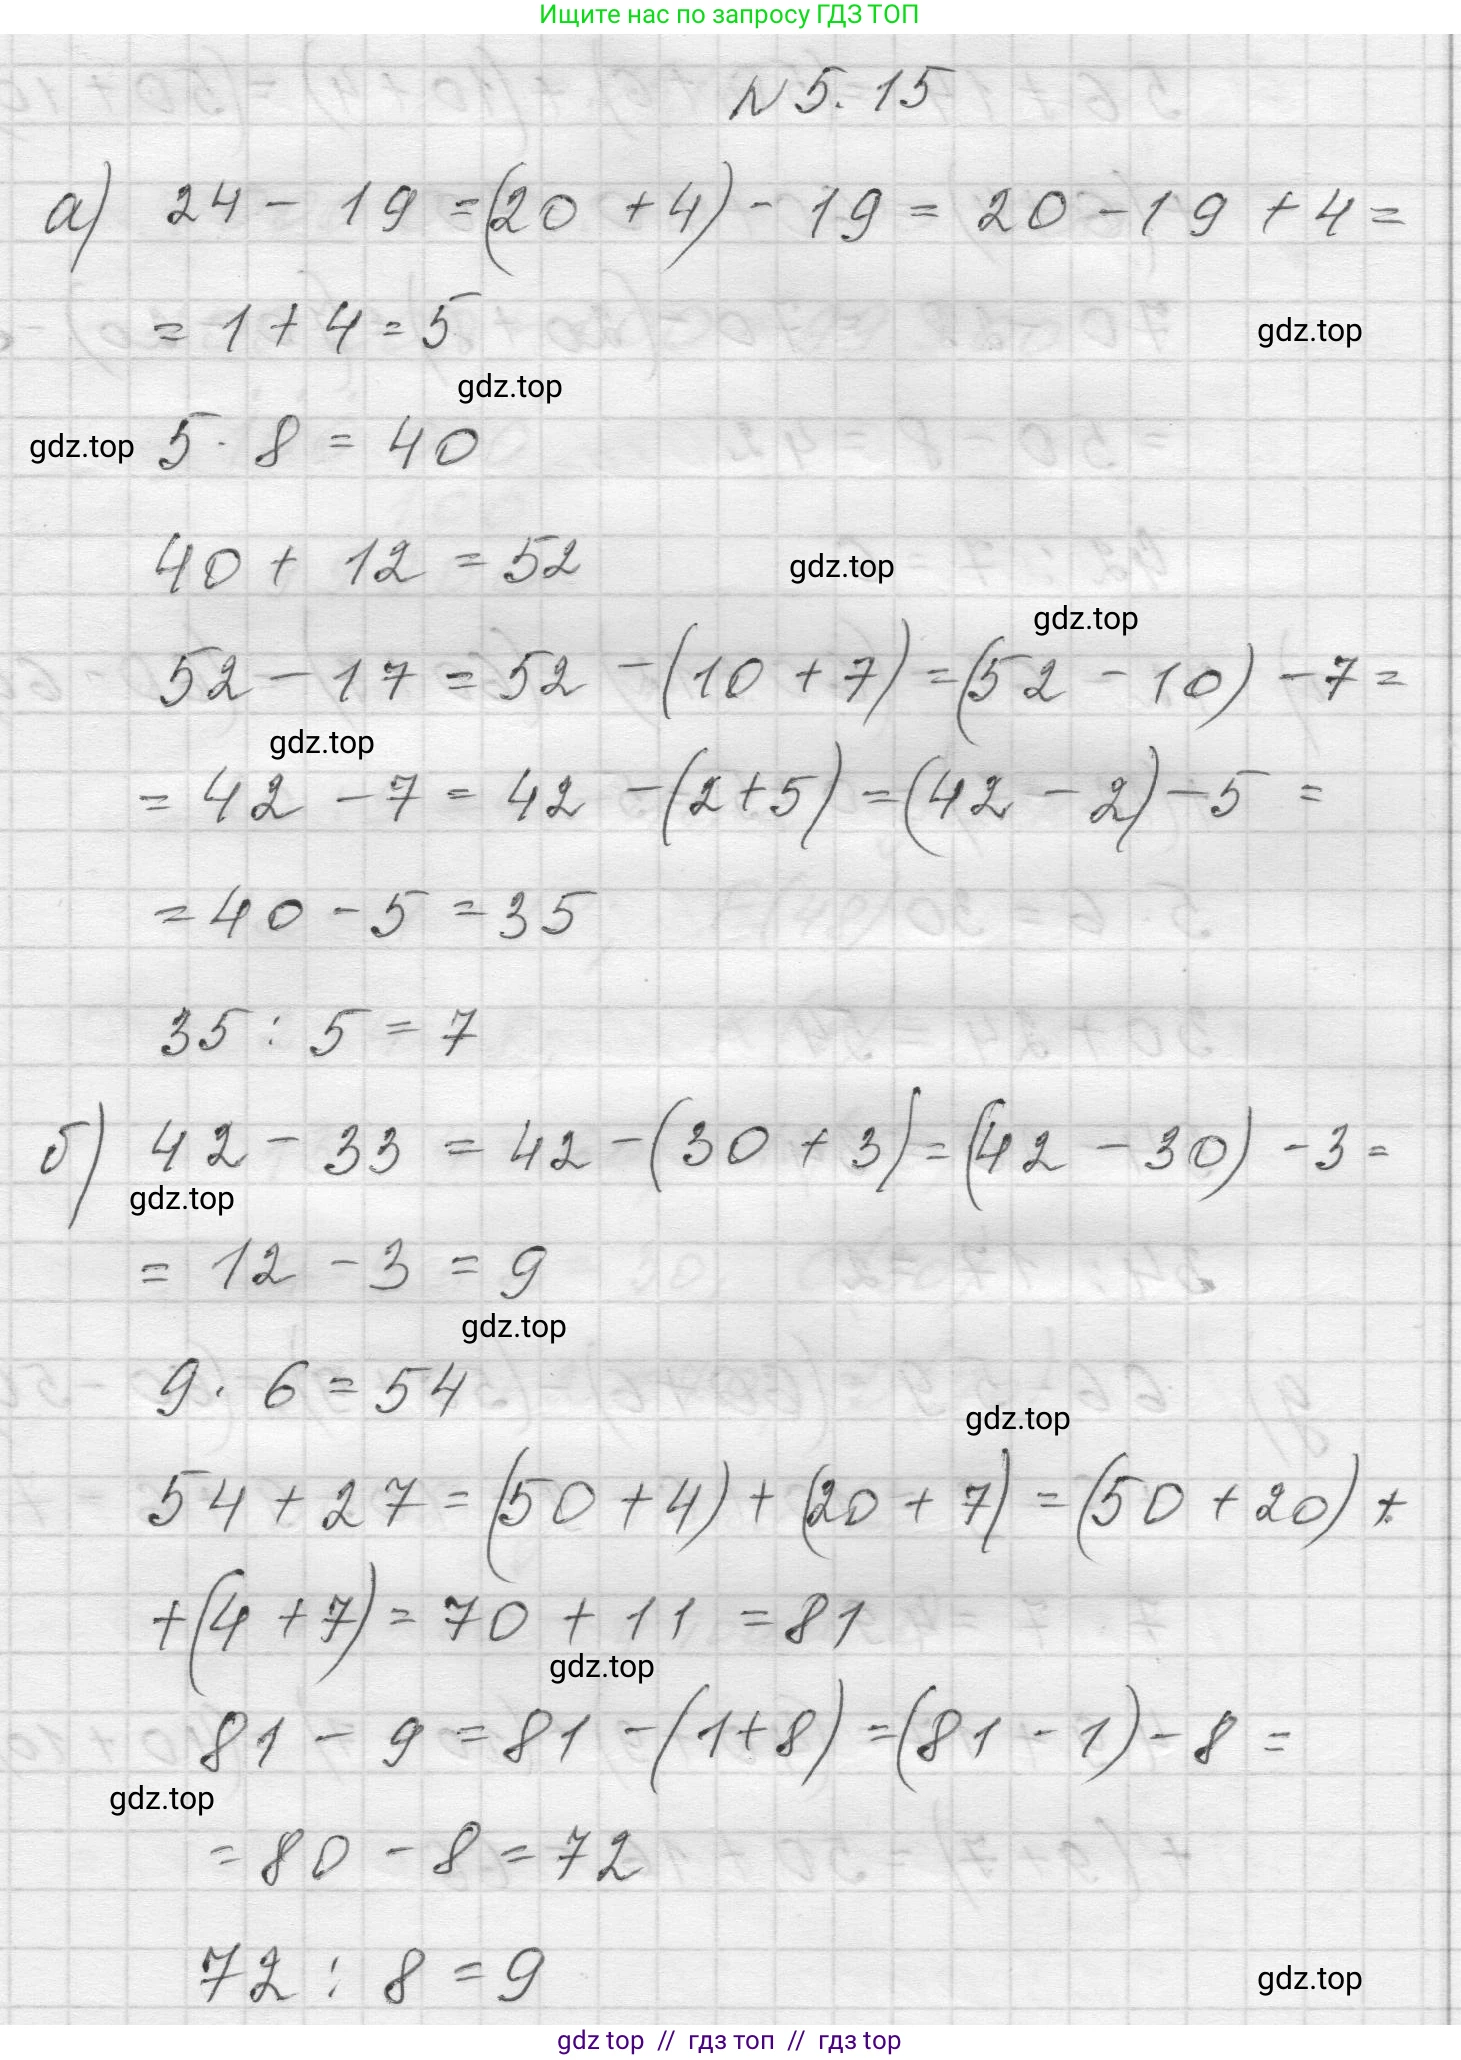 Ищите нас по запросу ГДЗ ТОП
N 5.15
а) 24 - 19 = (20 + 4) - 19 = 20 - 19 + 4 =
= 1 + 4 = 5
gdz.top
gdz.top
gdz.top
5 · 8 = 40
40 + 12 = 52
gdz.top
gdz.top
52 - 17 = 52 - (10 + 7) = (52 - 10) - 7 =
gdz.top
= 42 - 7 = 42 - (2 + 5) = (42 - 2) - 5 =
= 40 - 5 = 35
35 : 5 = 7
б) 42 - 33 = 42 - (30 + 3) = (42 - 30) - 3 =
gdz.top
= 12 - 3 = 9
gdz.top
9 · 6 = 54
gdz.top
54 + 27 = (50 + 4) + (20 + 7) = (50 + 20) +
+ (4 + 7) = 70 + 11 = 81
gdz.top
81 - 9 = 81 - (1 + 8) = (81 - 1) - 8 =
gdz.top
= 80 - 8 = 72
72 : 8 = 9
gdz.top
gdz top // гдз топ // гdz top